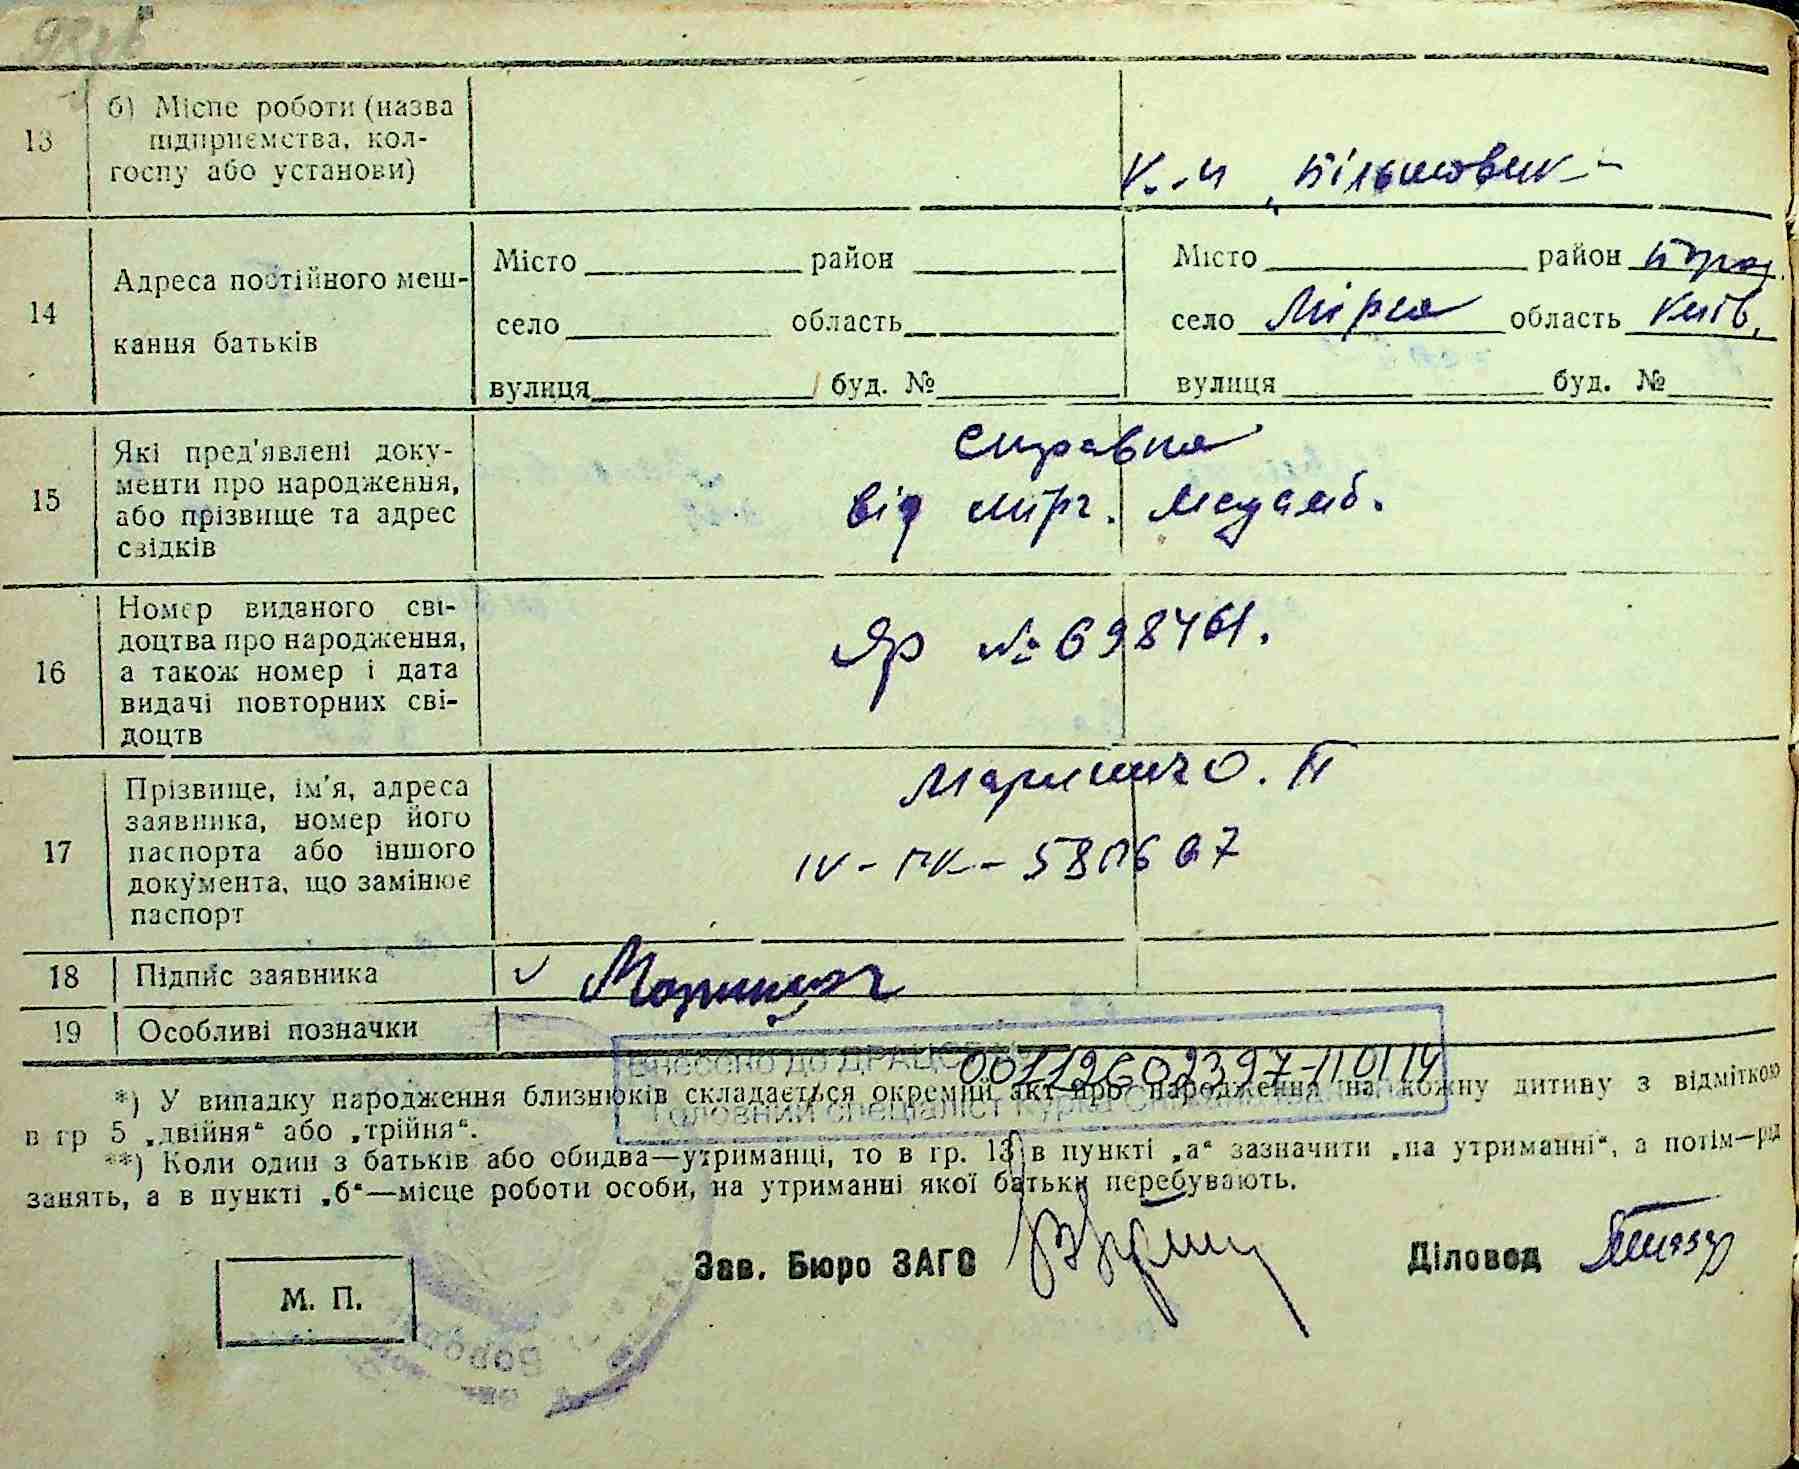 13 б) Місце роботи (назва
підприємства, кол-
госпу або установи)
к-п „Більшовик"
14 Адреса постійного меш-
кання батьків
Місто район
село область
вулиця буд. №
Місто район Бород.
село Мірча область Київ.
вулиця буд. №
15 Які пред'явлені доку-
менти про народження,
або прізвище та адрес
свідків
Справка
від Мірч. Медамб.
16 Номер виданого сві-
доцтва про народження,
а також номер і дата
видачі повторних сві-
доцтв
ЯР № 698461.
17 Прізвище, ім'я, адреса
заявника, номер його
паспорта або іншого
документа, що замінює
паспорт
О. П
IV-ПК-
18 Підпис заявника
19 Особливі позначки
Внесено до ДРАЦСГ
00112602397-110114
Головний спеціаліст
*) У випадку народження близнюків складається окремий акт про народження на кожну дитину з відміткою
в гр 5 „двійня“ або „трійня“.
**) Коли один з батьків або обидва—утриманці, то в гр. 13 в пункті „а“ зазначити „на утриманні“, а потім—рід
занять, а в пункті „б“—місце роботи особи, на утриманні якої батьки перебувають.
Зав. Бюро ЗАГС
Діловод
М. П.